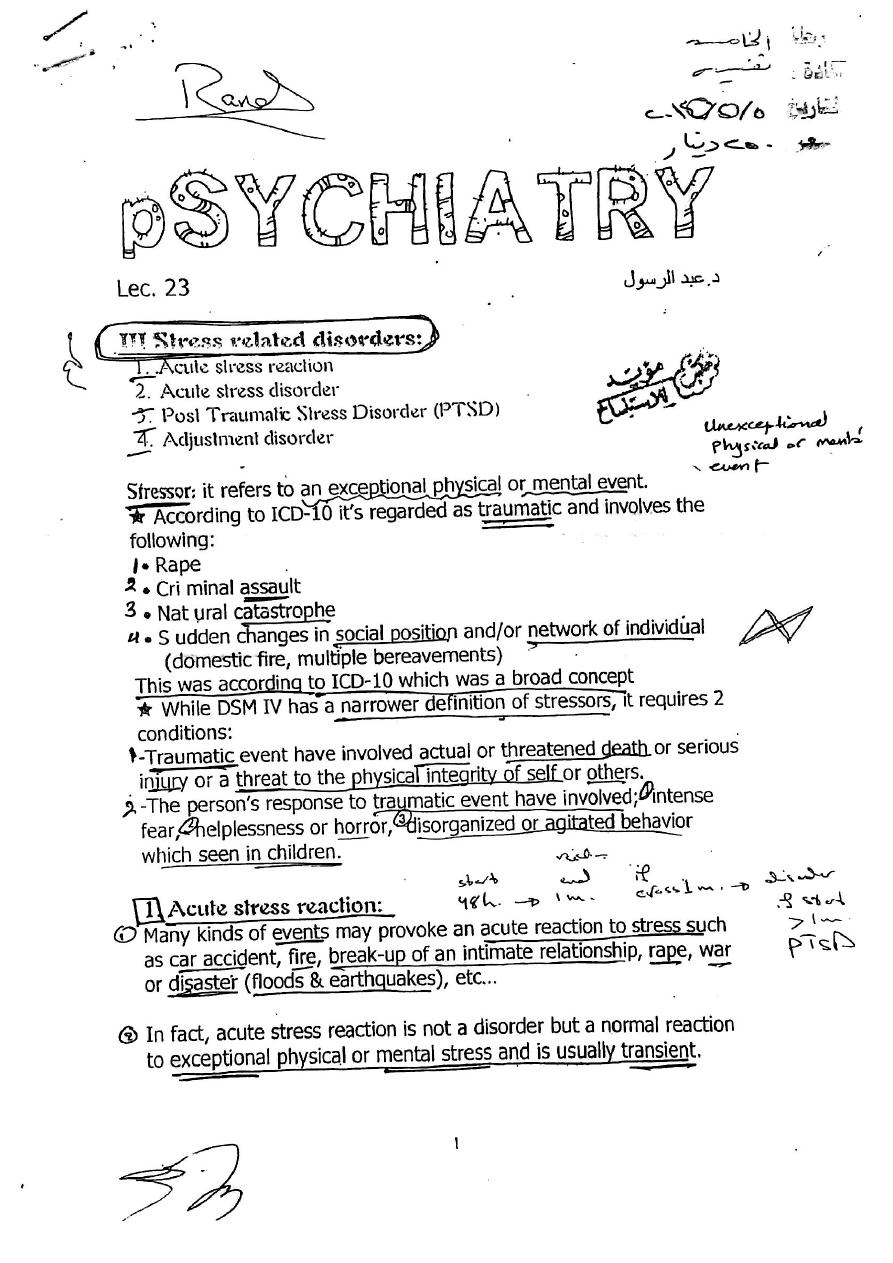 Rand
الخامسة
نفسية
دينار
pSYCHIATRY
Lec. 23
د.عبد الرسول
III Stress related disorders:
1. Acute stress reaction
2. Acute stress disorder
3. Post Traumatic Stress Disorder (PTSD)
4. Adjustment disorder
مؤيد
للاستنساخ
Unexceptional
physical or mental
event
Stressor: it refers to an exceptional physical or mental event.
★ According to ICD-10 it's regarded as traumatic and involves the
following:
1• Rape
2• Cri minal assault
3• Nat ural catastrophe
4• S udden changes in social position and/or network of individual
(domestic fire, multiple bereavements)
This was according to ICD-10 which was a broad concept
★ While DSM IV has a narrower definition of stressors, it requires 2
conditions:
1-Traumatic event have involved actual or threatened death or serious
injury or a threat to the physical integrity of self or others.
2-The person's response to traumatic event have involved; ① intense
fear, ② helplessness or horror, ③ disorganized or agitated behavior
which seen in children.
start end if disorder
48h. → 1m. cross 1m. → if start
>1m.
PTSD
1 Acute stress reaction:
① Many kinds of events may provoke an acute reaction to stress such
as car accident, fire, break-up of an intimate relationship, rape, war
or disaster (floods & earthquakes), etc...
② In fact, acute stress reaction is not a disorder but a normal reaction
to exceptional physical or mental stress and is usually transient.
1